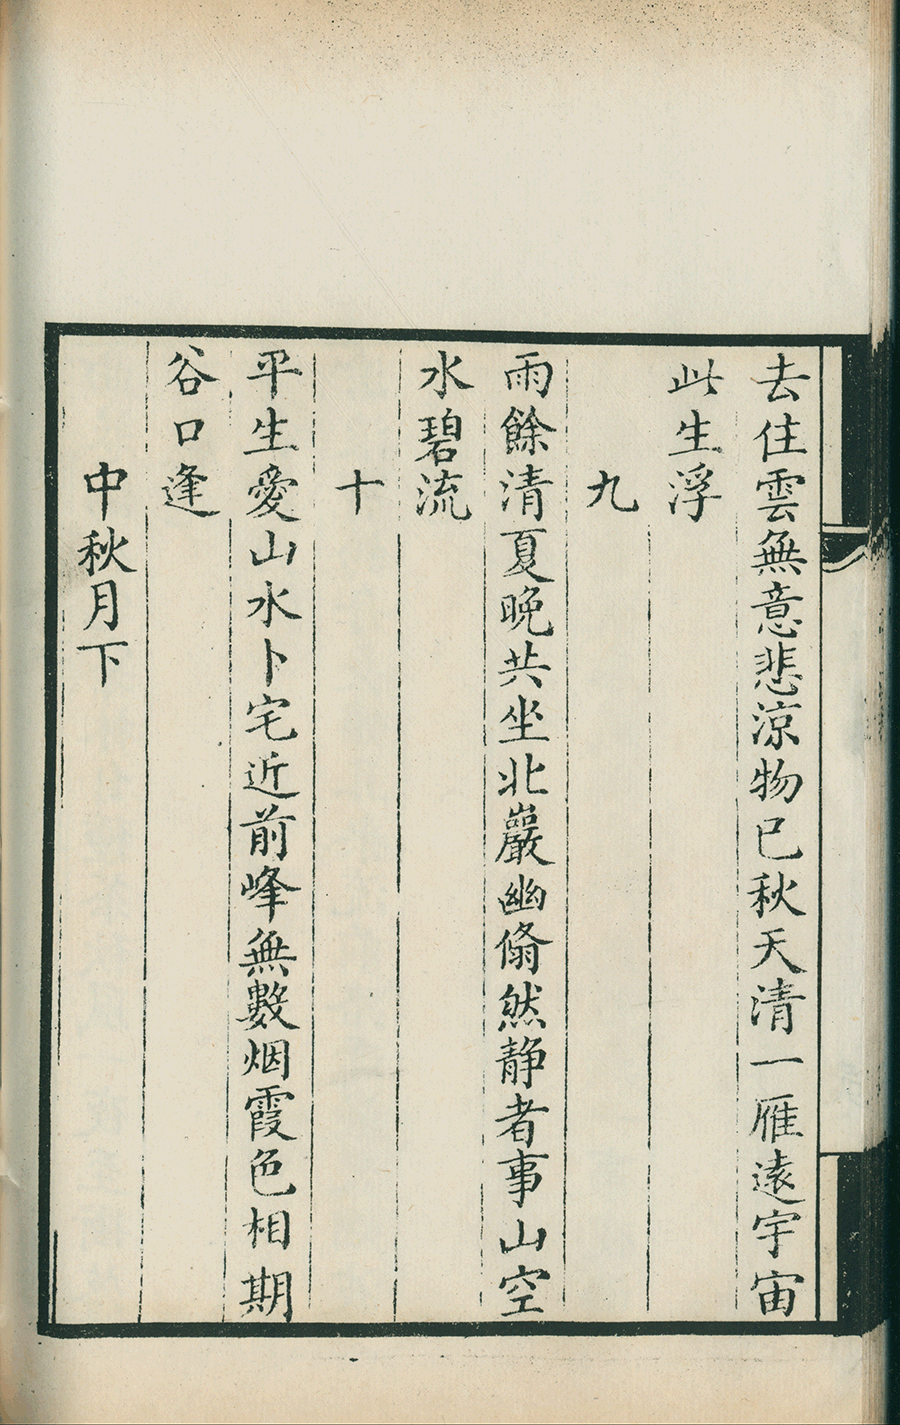 去住雲無意悲涼物已秋天清一雁遠宇宙
此生浮
九
雨餘清夏晚共坐北巖幽翛然静者事山空
水碧流
十
平生愛山水卜宅近前峰無數烟霞色相期
谷口逢
中秋月下